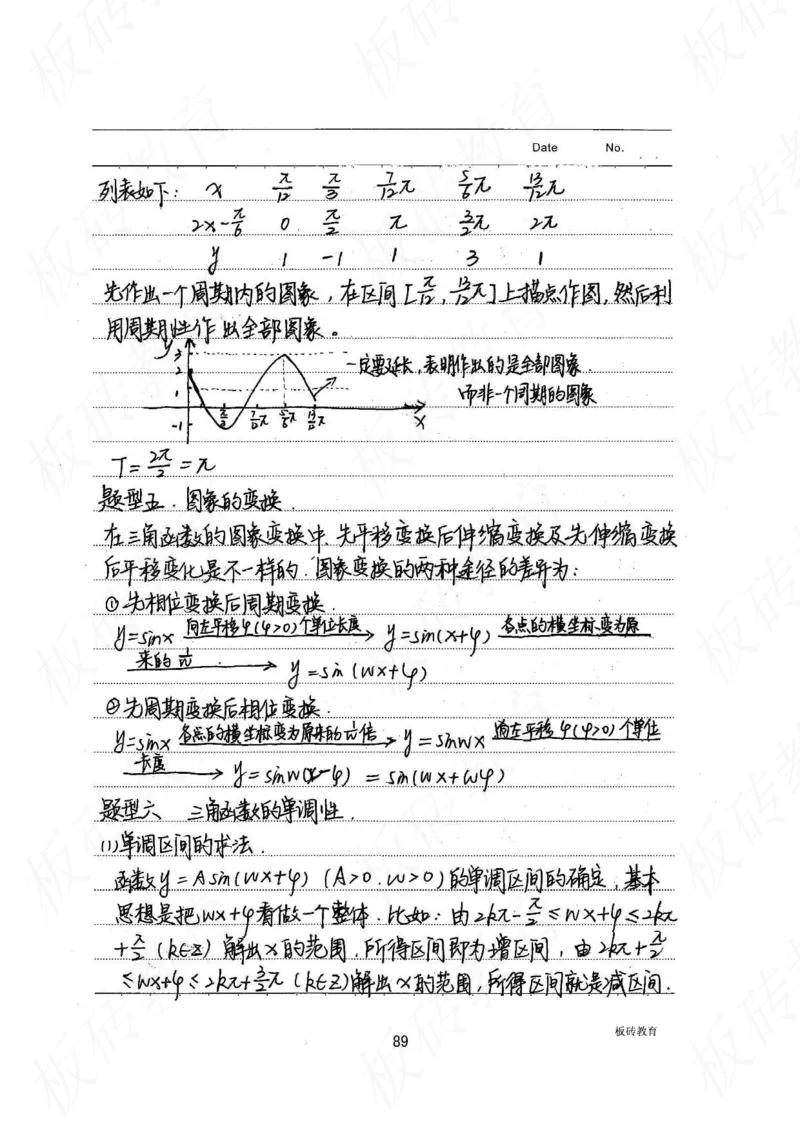 Date No.
列表如下: x π/12 π/3 7/12π 5/6π 13/12π
2x-π/6 0 π/2 π 3/2π 2π
y 1 -1 1 3 1
先作出一个周期内的图象,在区间[π/12,13/12π]上描点作图,然后利
用周期性作出全部图象。
y
3
2
1
-1
π/3 7/12π 5/6π 13/12π
x
一定要延长,表明作出的是全部图象.
而非一个周期的图象
T=2π/2=π
题型五.图象的变换.
在三角函数的图象变换中,先平移变换后伸缩变换及先伸缩变换
后平移变化是不一样的.图象变换的两种途径的差异为:
①先相位变换后周期变换.
y=sinx 向左平移φ(φ>0)个单位长度→ y=sin(x+φ) 各点的横坐标变为原
来的1/ω→ y=sin(wx+φ)
②先周期变换后相位变换.
y=sinx 各点的横坐标变为原来的1/ω倍→ y=sinwx 向左平移φ(φ>0)个单位
长度→ y=sinw(x-φ) = sin(wx+wφ)
题型六 三角函数的单调性.
(1)单调区间的求法.
函数y=Asin(wx+φ) (A>0.w>0)的单调区间的确定,基本
思想是把wx+φ看做一个整体.比如:由2kπ-π/2≤wx+φ≤2kπ
+π/2 (k∈Z) 解出x的范围.所得区间即为增区间,由2kπ+π/2
≤wx+φ≤2kπ+3/2π (k∈Z)解出x的范围,所得区间就是减区间.
板砖教育
89